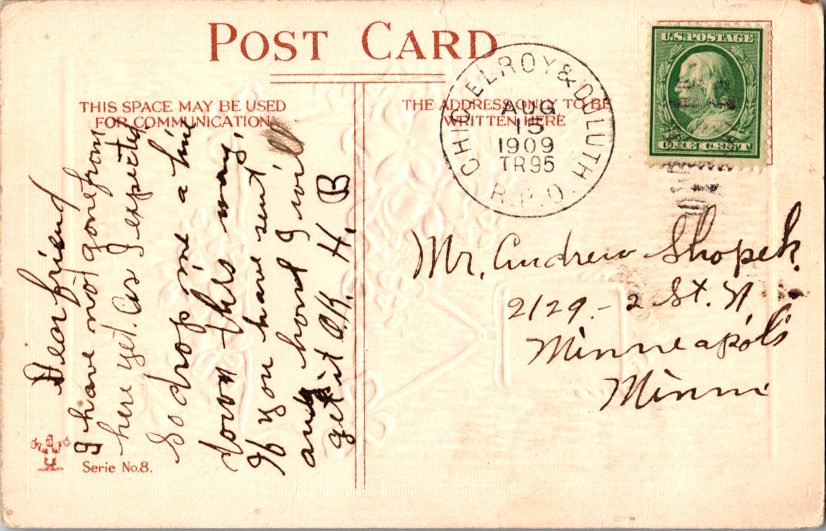 POST CARD
THIS SPACE MAY BE USED
FOR COMMUNICATION
THE ADDRESS ONLY TO BE
WRITTEN HERE
CHI
ELROY & DULUTH
AUG
15
1909
TR95
R.P.O.
U.S. POSTAGE
ONE CENT
Dear friend
I have not gone from
here yet. as I expected
So drop me a line
down this way.
If you have sent
any hond I will
get it O.K. H. B
Mr. Andrew Shopek.
2129.-2 St. N
Minneapolis
Minn
Serie No. 8.